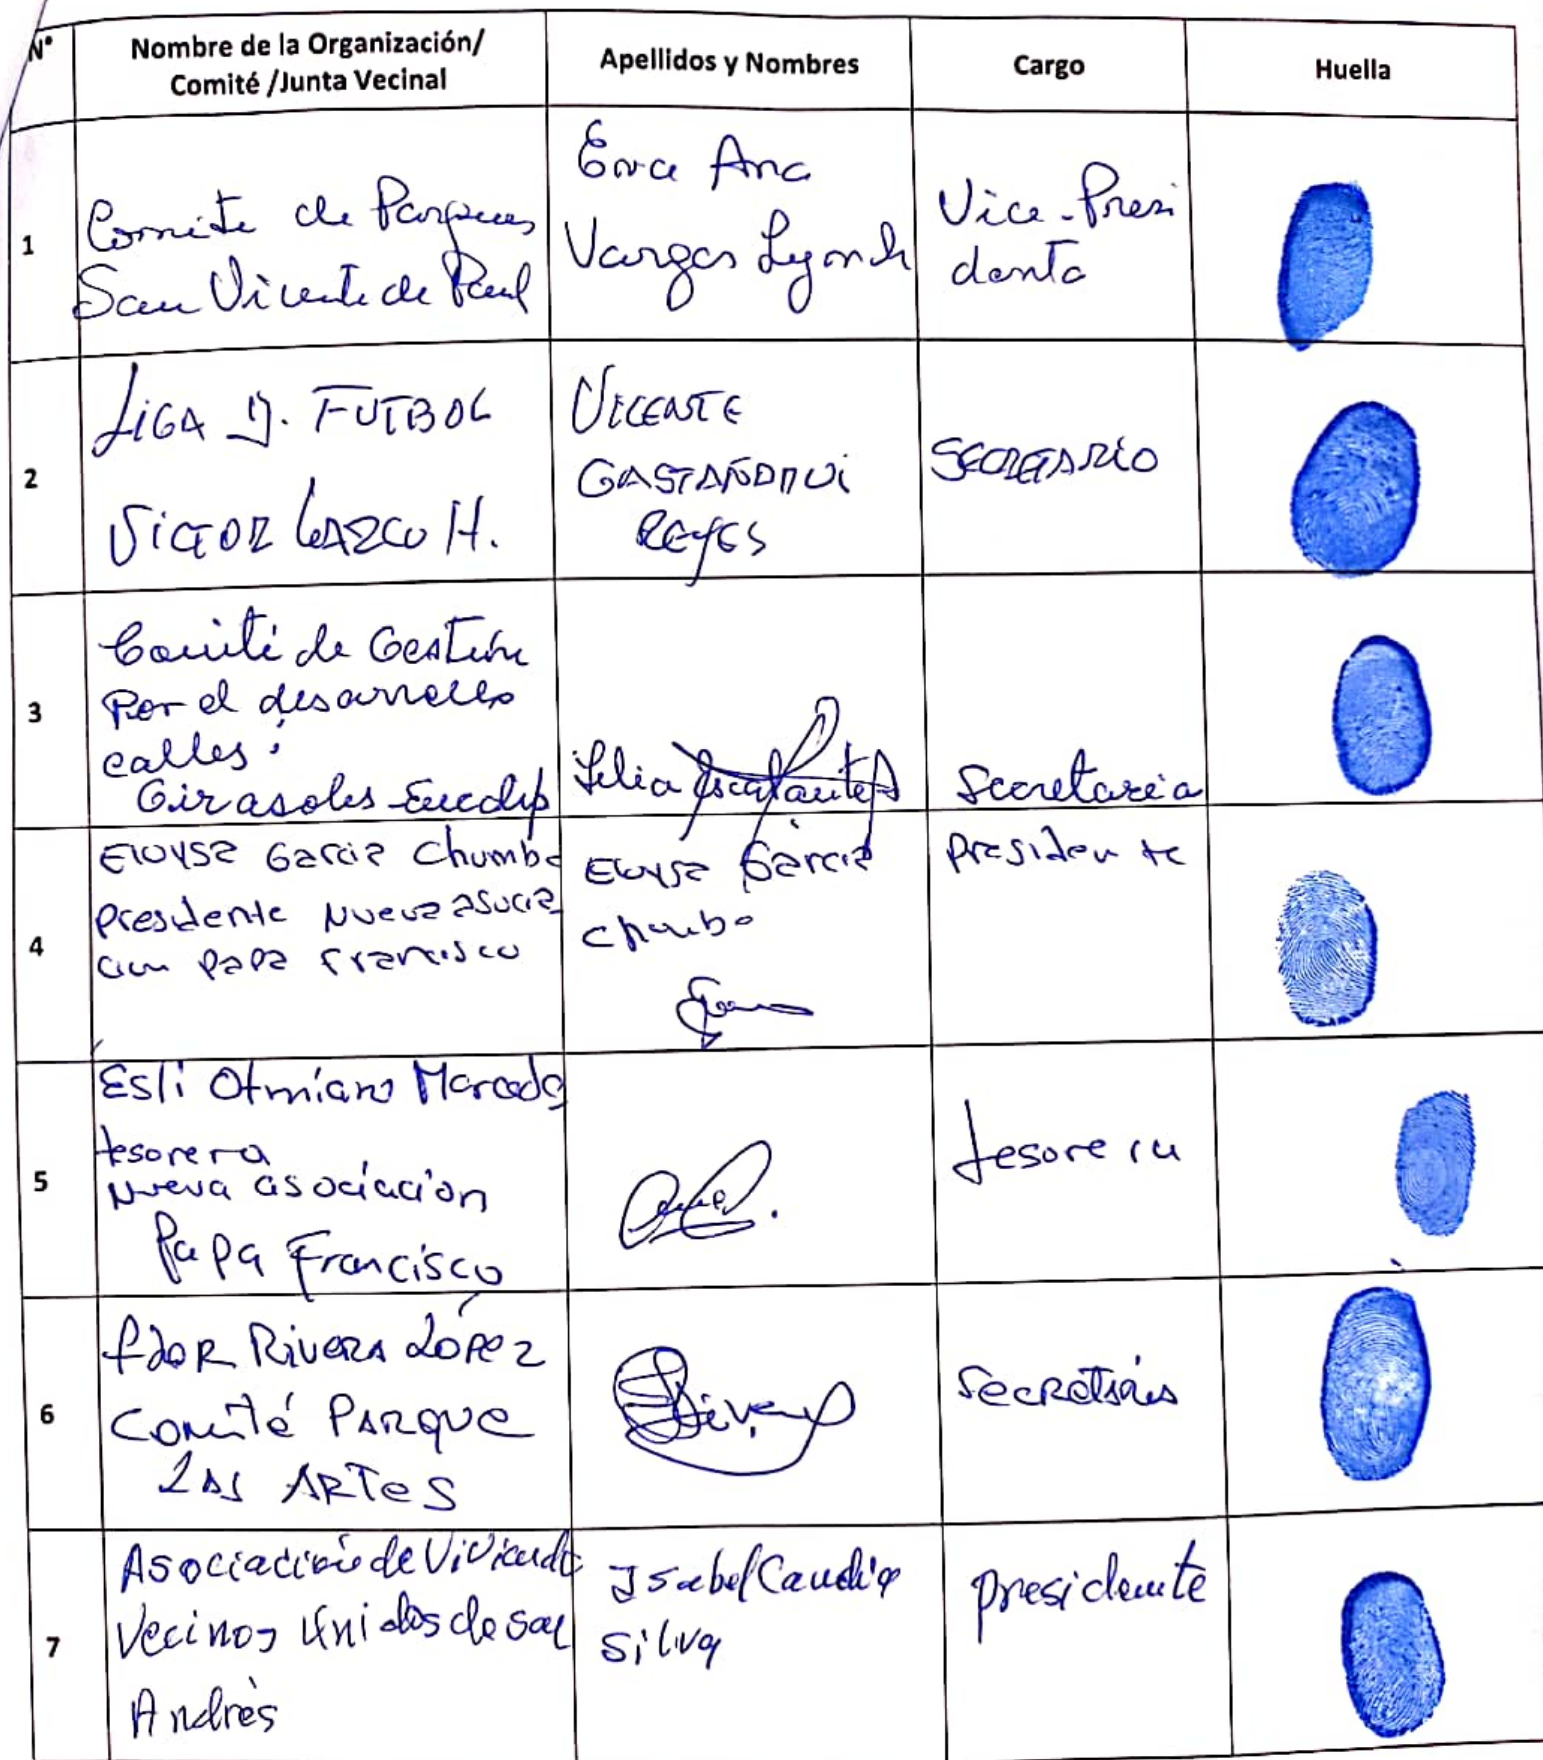 N° Nombre de la Organización/ Comité /Junta Vecinal Apellidos y Nombres Cargo Huella
1
Comite de Parques
San Vicente de Paul
Ana
Vargas Lynch
Vice-Presi
denta
2
LIGA D. FUTBOL
VICTOR LARCO H.
VICENTE
GASTAÑADUI
REYES
SECRETARIO
3
Comité de Gestión
Por el desarrollo
calles:
Girasoles
Lelia Escalante
Secretaria
4
Eloysa Garcia Chumbe
presidente Nueva asocia
cion papa francisco
Eloysa Garcia
chumbe
presidente
5
Esli Otiniano
tesorera
Nueva asociación
Papa Francisco
tesorera
6
RIVERA LÓPEZ
Comité PARQUE
LAS ARTES
Rivera
Secretario
7
Asociación de Vivienda
Vecinos Unidos de San
Andrès
Isabel
Silva
presidente